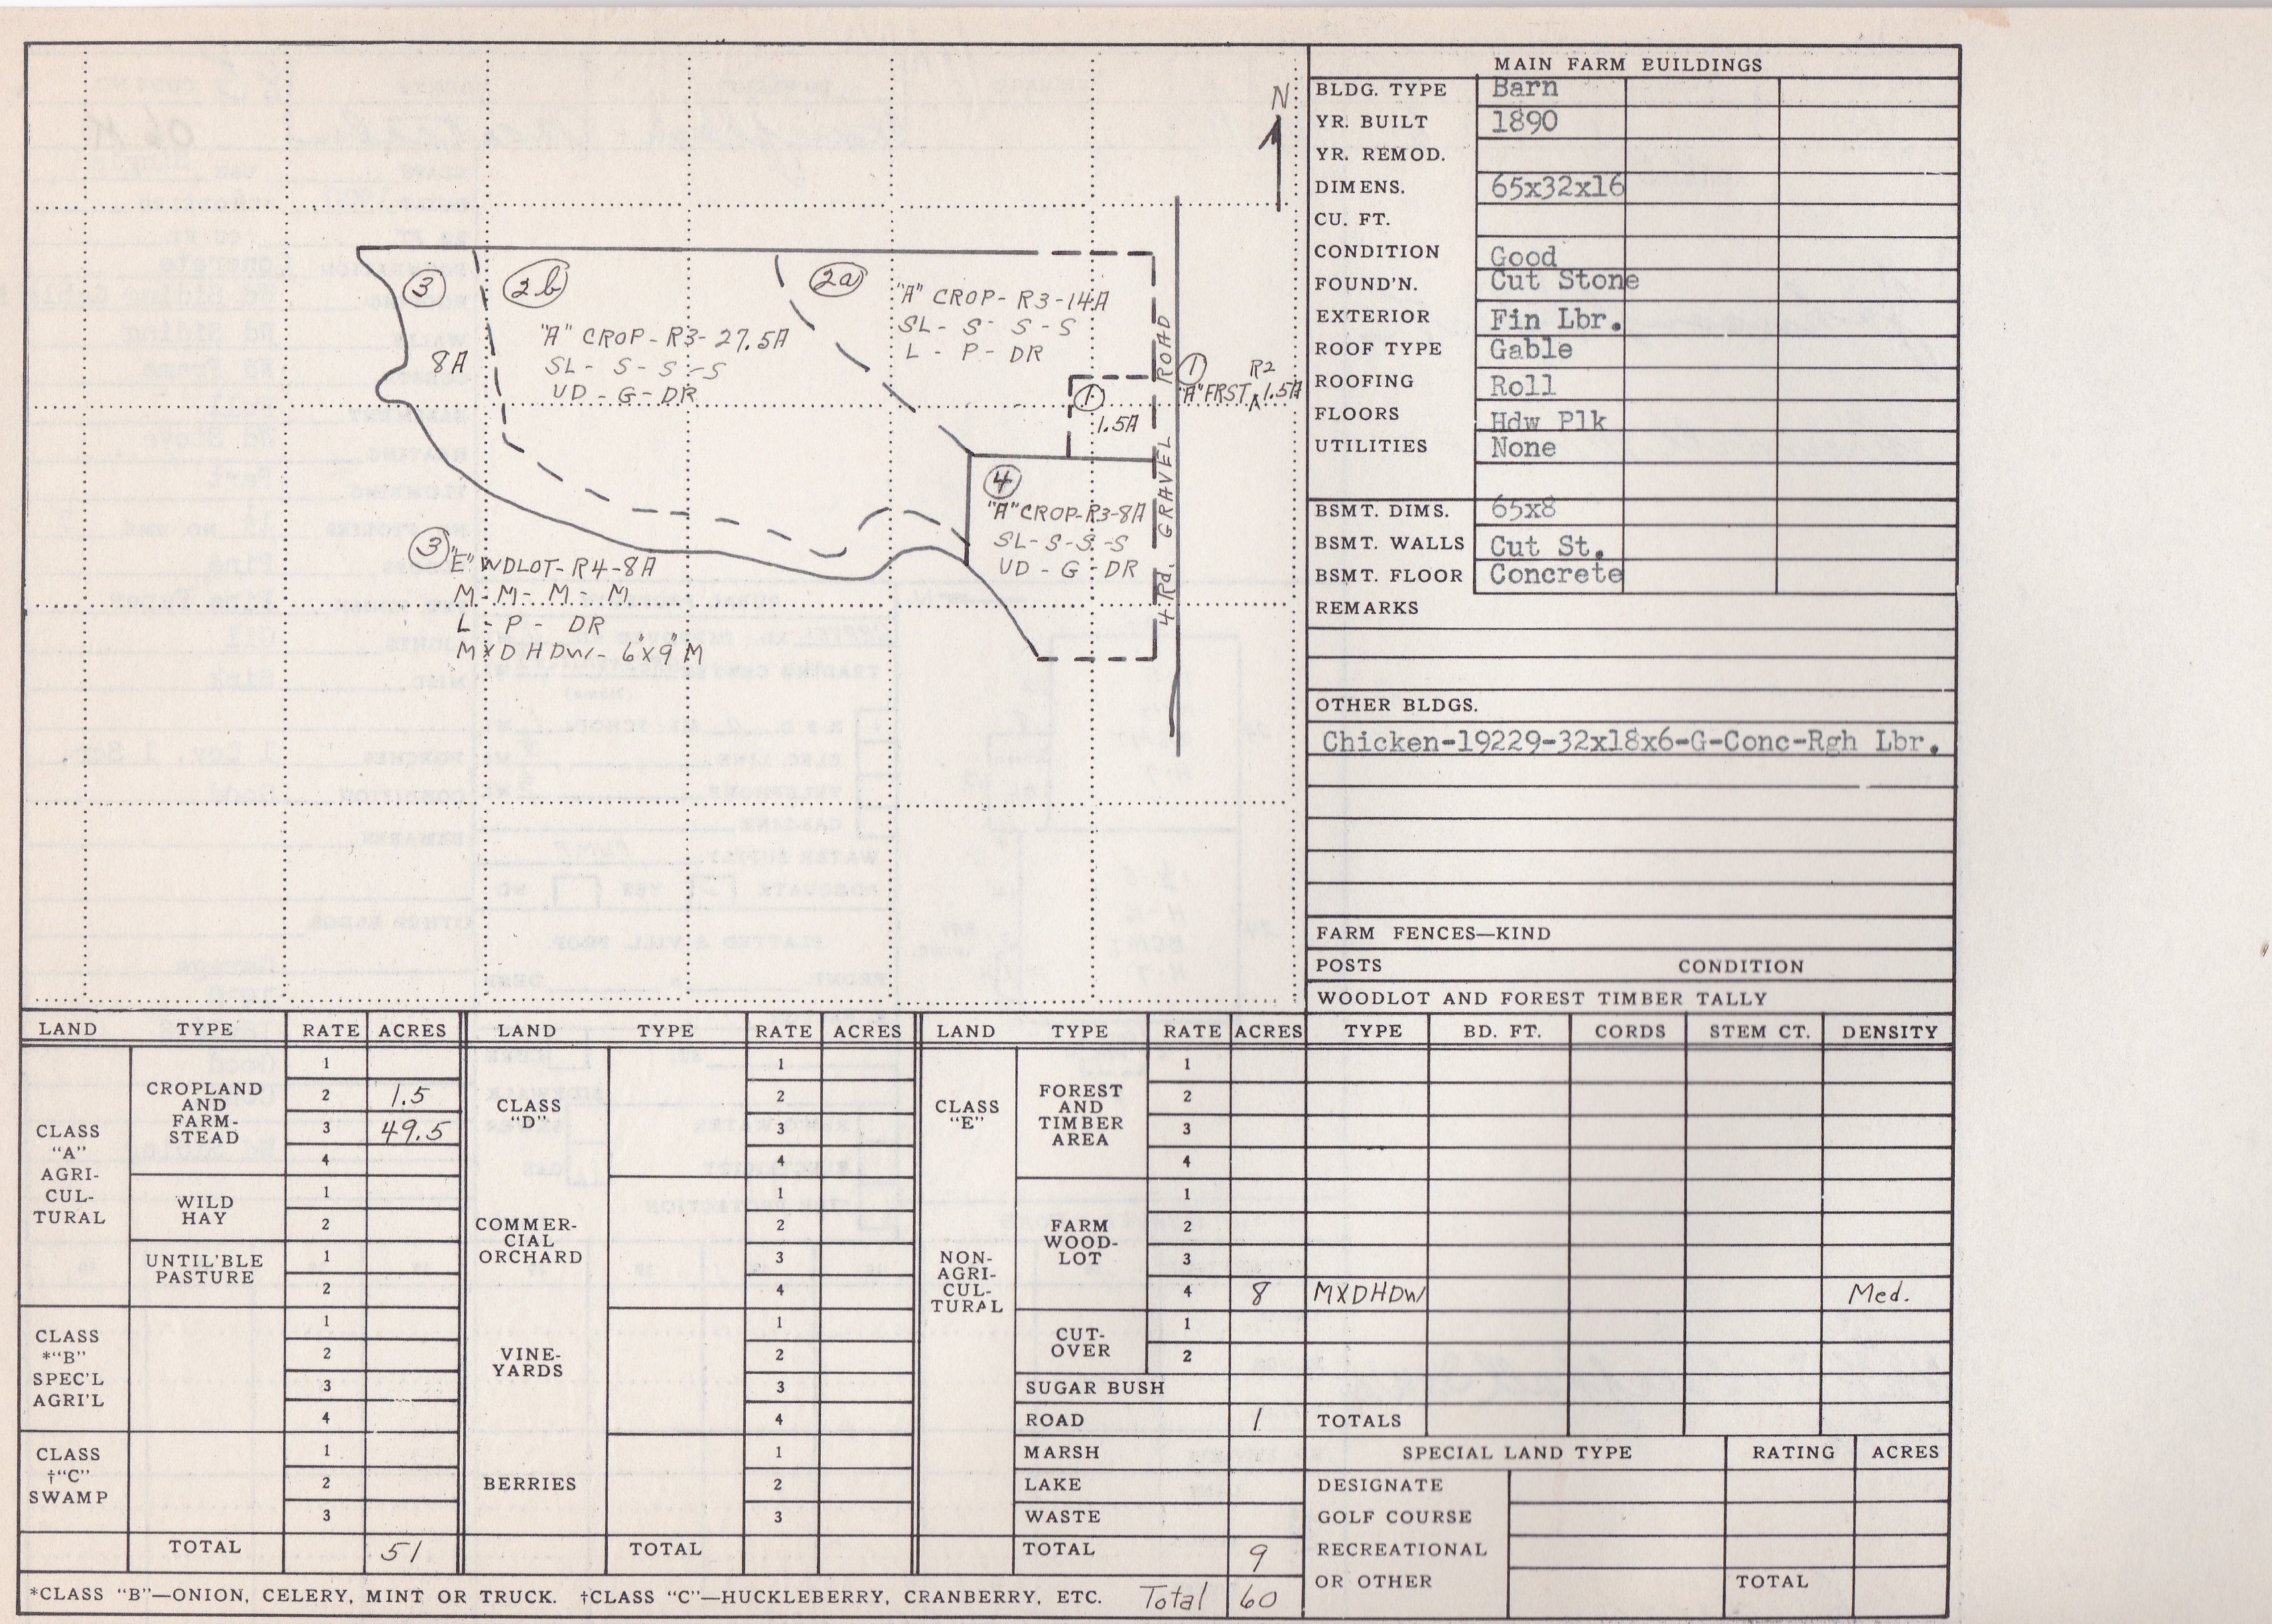 N
3
2b
2a
"A" CROP- R3-14A
SL- S- S-S
L - P- DR
"A" CROP-R3-27.5A
SL- S-S-S
UD-G-DR
8A
1
1.5A
1
R2
"A" FRST. 1.5A
4 Rd. GRAVEL ROAD
4
"A" CROP-R3-8A
SL-S-S-S
UD-G-DR
3
"E" WDLOT-R4-8A
M-M-M-M
L-P- DR
MXDHDW- 6"x9" M
MAIN FARM BUILDINGS
BLDG. TYPE Barn
YR. BUILT 1890
YR. REMOD.
DIMENS. 65x32x16
CU. FT.
CONDITION Good
FOUND'N. Cut Stone
EXTERIOR Fin Lbr.
ROOF TYPE Gable
ROOFING Roll
FLOORS Hdw Plk
UTILITIES None
BSMT. DIMS. 65x8
BSMT. WALLS Cut St.
BSMT. FLOOR Concrete
REMARKS
OTHER BLDGS.
Chicken-19229-32x18x6-G-Conc-Rgh Lbr.
FARM FENCES—KIND
POSTS CONDITION
WOODLOT AND FOREST TIMBER TALLY
LAND TYPE RATE ACRES LAND TYPE RATE ACRES LAND TYPE RATE ACRES TYPE BD. FT. CORDS STEM CT. DENSITY
CLASS
"A"
AGRI-
CUL-
TURAL
CROPLAND
AND
FARM-
STEAD
1
2 1.5
3 49.5
4
WILD
HAY
1
2
UNTIL'BLE
PASTURE
1
2
CLASS
*"B"
SPEC'L
AGRI'L
1
2
3
4
CLASS
†"C"
SWAMP
1
2
3
TOTAL 51
CLASS
"D"
1
2
3
4
COMMER-
CIAL
ORCHARD
1
2
3
4
VINE-
YARDS
1
2
3
4
BERRIES
1
2
3
TOTAL
CLASS
"E"
NON-
AGRI-
CUL-
TURAL
FOREST
AND
TIMBER
AREA
1
2
3
4
FARM
WOOD-
LOT
1
2
3
4 8 MXDHDW Med.
CUT-
OVER
1
2
SUGAR BUSH
ROAD 1
MARSH
LAKE
WASTE
TOTAL 9
TOTALS
SPECIAL LAND TYPE RATING ACRES
DESIGNATE
GOLF COURSE
RECREATIONAL
OR OTHER TOTAL
*CLASS "B"—ONION, CELERY, MINT OR TRUCK. †CLASS "C"—HUCKLEBERRY, CRANBERRY, ETC. Total 60